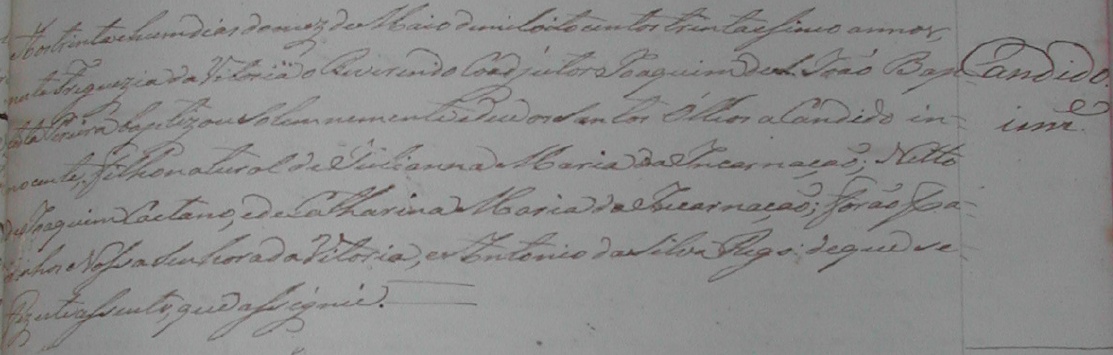 Aos trinta e hum dias do mez de Maio de mil oitocentos trinta e sinco annos,
nesta Freguezia da Vitoria o Reverendo Coadjutor Joaquim de S. João Bap-
tista Pereira baptizou solemnemente e deu os Santos Olhos a Candido in-
nocente, filho natural de Julianna Maria da Incarnação; Netto
de Joaquim Caetano, e de Catharina Maria da Incarnação; forão Pa-
drinhos Nossa Senhora da Vitoria, e Antonio da Silva Rego: de que se
fez este assento, que assignei.
Candido.
inn.e